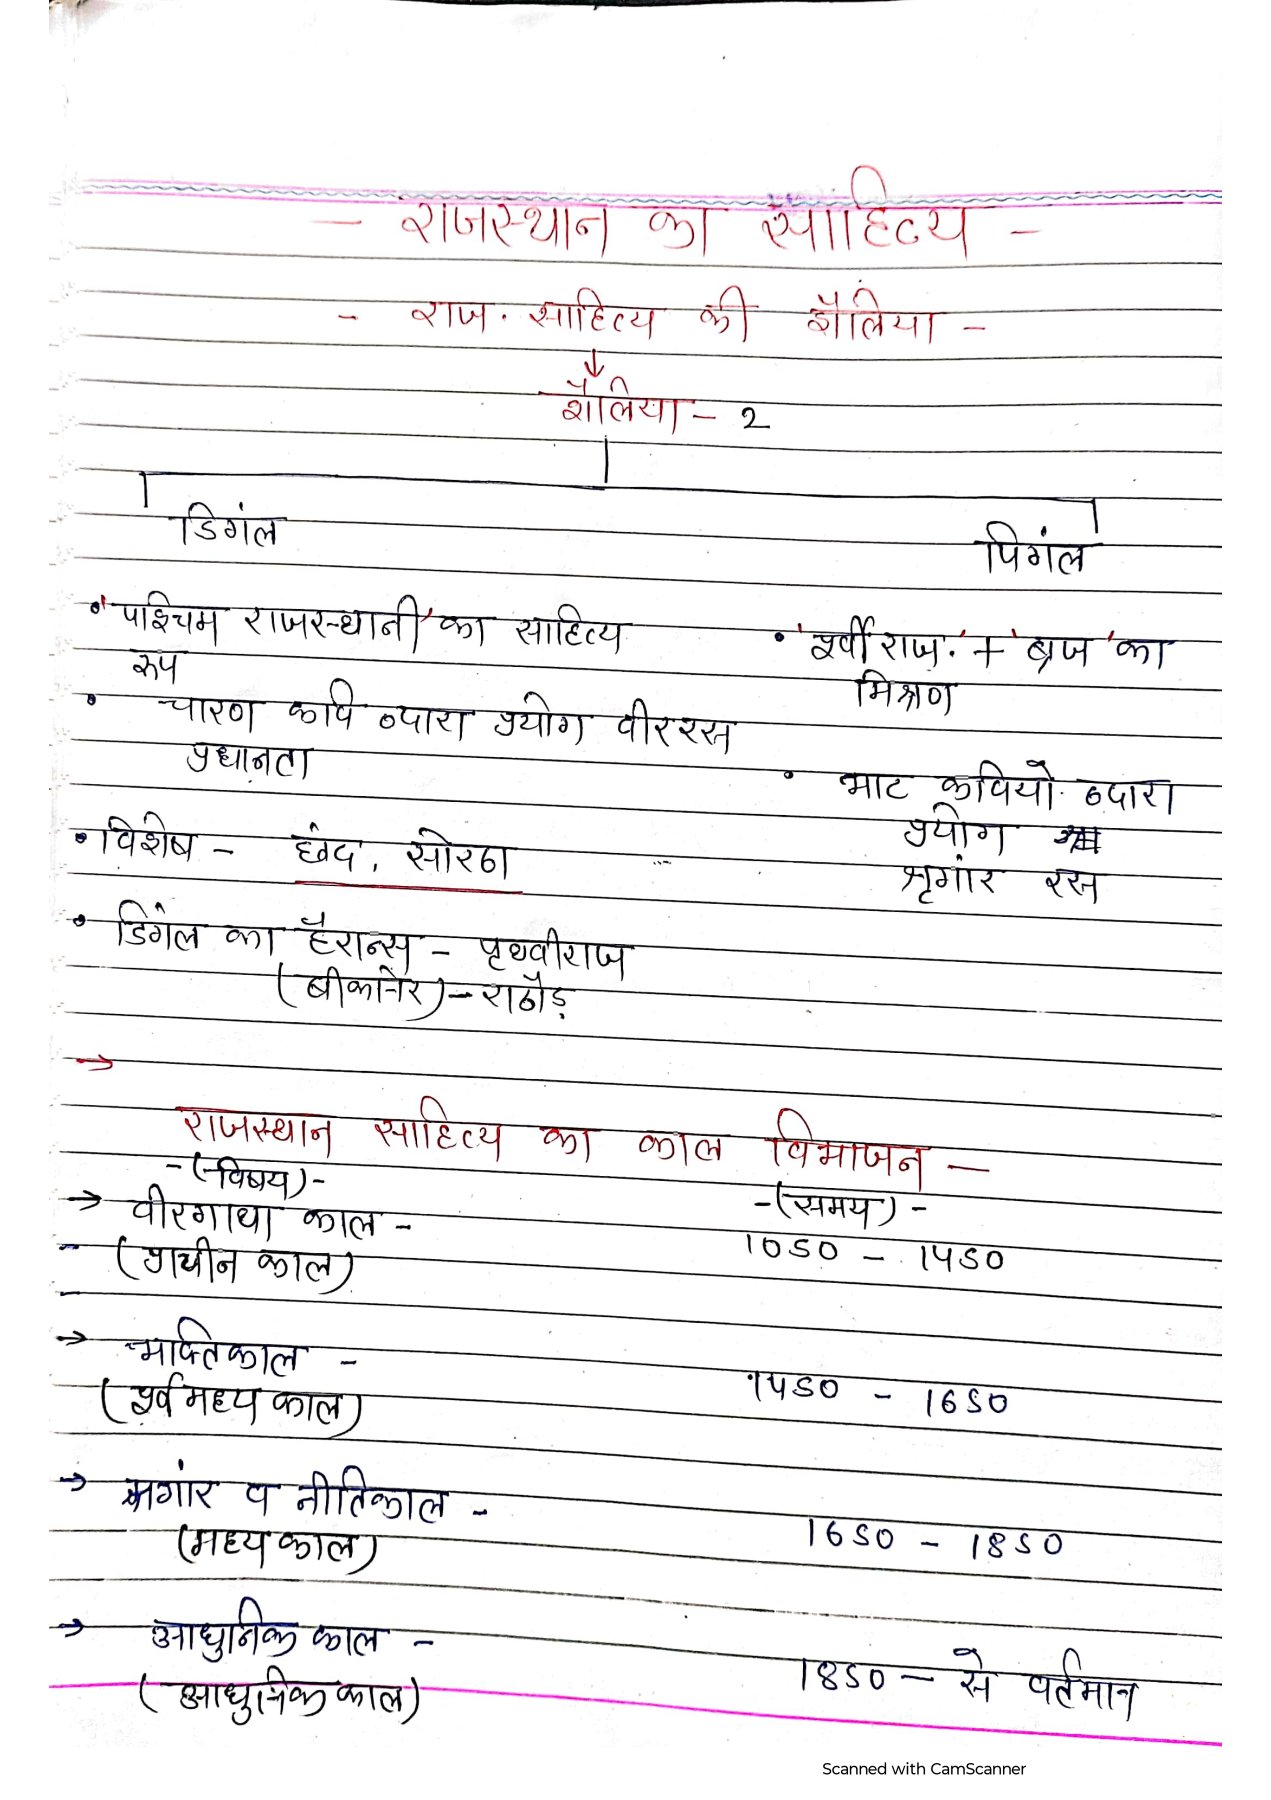 - राजस्थान का साहित्य -
- राज. साहित्य की शैलिया -
शैलिया - 2
डिगंल
पिगंल
• 'पश्चिम राजस्थानी' का साहित्य
रूप
• 'पूर्वी राज.' + 'ब्रज' का
मिश्रण
• चारण कवि द्वारा प्रयोग वीररस
प्रधानता
• भाट कवियों द्वारा
प्रयोग
श्रृगांर रस
• विशेष - छंद, सोरठा
• डिगंल का हैरान्स - पृथ्वीराज
(बीकानेर) - राठौड़
→
राजस्थान साहित्य का काल विभाजन -
-(विषय)-
-(समय)-
→ वीरगाथा काल -
1050 - 1450
(प्राचीन काल)
→ भक्तिकाल -
1450 - 1650
(पूर्व मध्य काल)
→ श्रृगांर व नीतिकाल -
1650 - 1850
(मध्य काल)
→ आधुनिक काल -
1850 - से वर्तमान
(आधुनिक काल)
Scanned with CamScanner